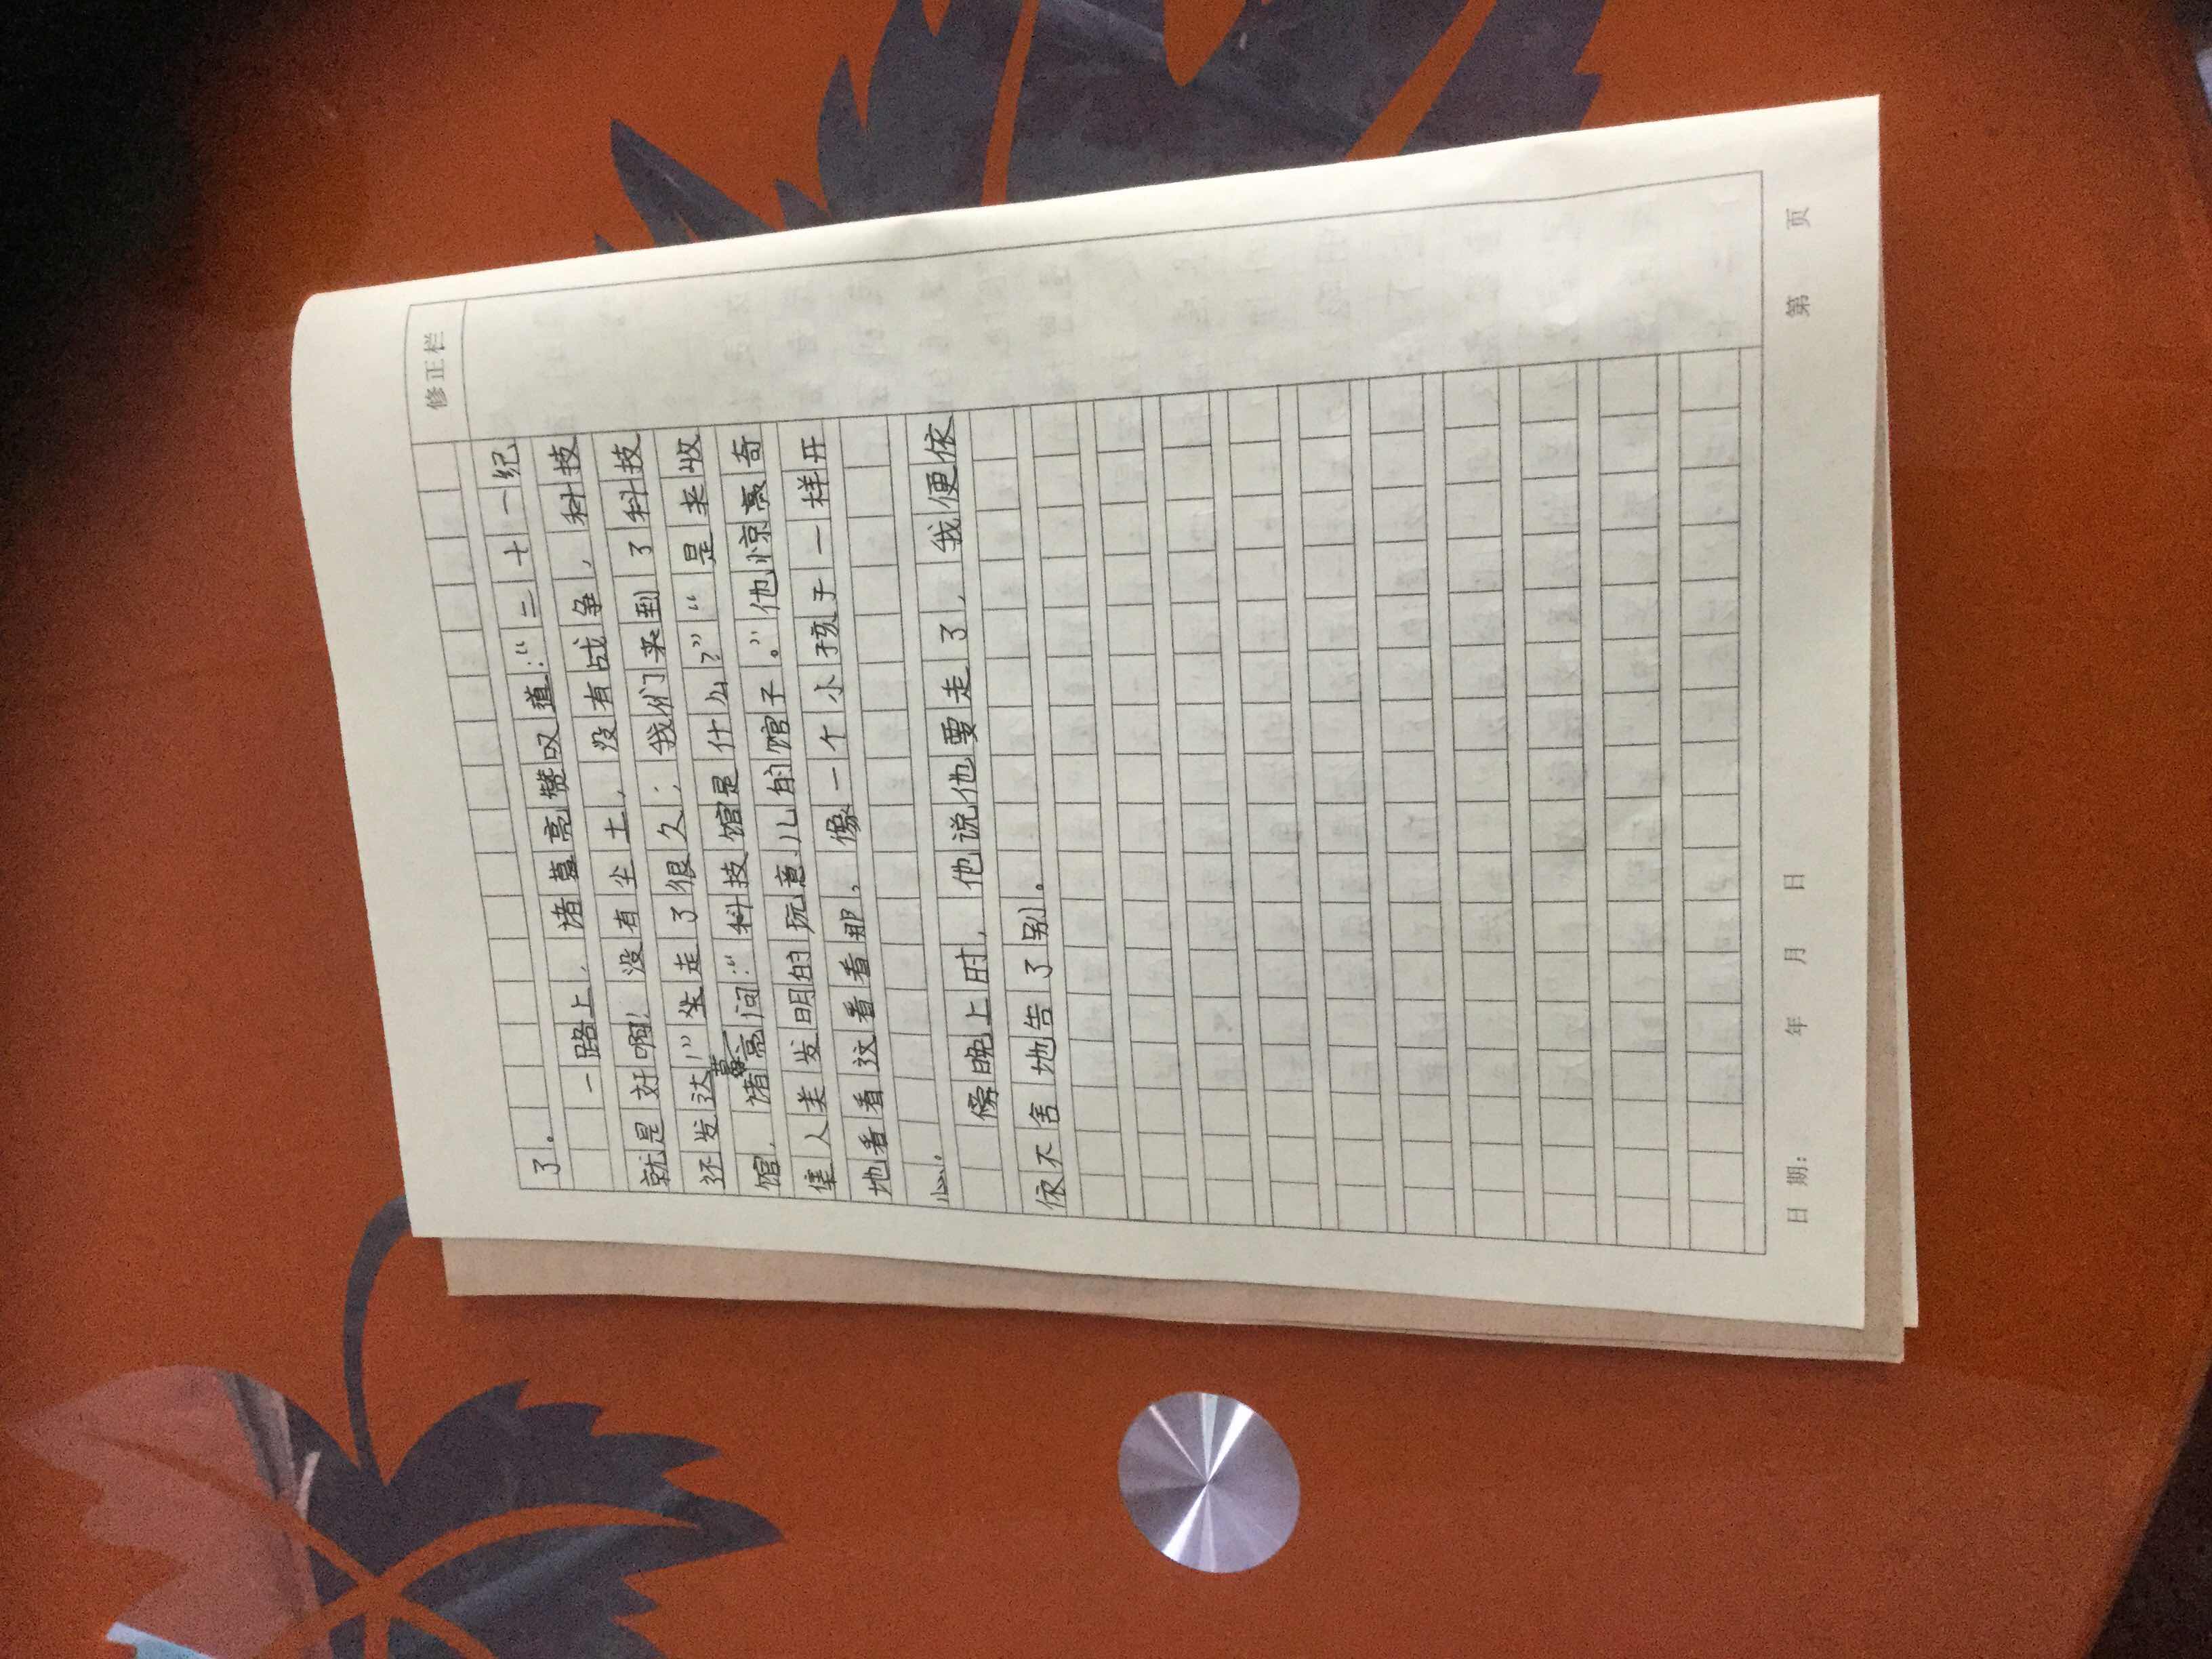 修正栏
了。
一路上，诸葛亮赞叹道：“二十一纪
就是好啊！没有尘土，没有战争，科技
还发达！”坐走了很久，我们来到了科技
馆，诸葛亮问：“科技馆是什么？”“是来收
集人类发明的玩意儿的馆子。”他惊喜奇
地看看这看看那，像一个小孩子一样开
心。
傍晚上时，他说他要走了，我便依
依不舍地告了别。
日期： 年 月 日 第 页